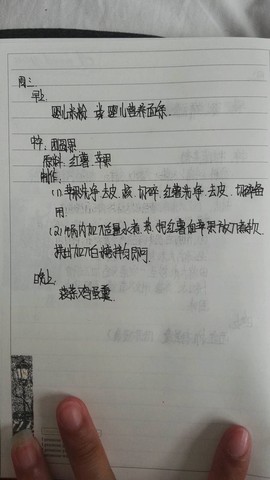 周三
早上:
婴儿米粉 或 婴儿营养面条.
中午: 团圆果
原料: 红薯 苹果
制作:
(1) 苹果洗净 去皮、核、切碎 红薯洗净、去皮、切碎备
用
(2) 锅内加入适量水煮 把红薯和苹果放入煮软,
即可.
晚上:
菠菜鸡蛋羹